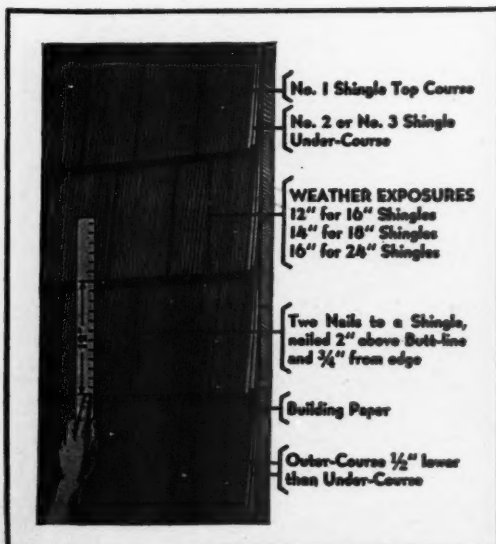 No. 1 Shingle Top Course
No. 2 or No. 3 Shingle
Under-Course
WEATHER EXPOSURES
12" for 16" Shingles
14" for 18" Shingles
16" for 24" Shingles
Two Nails to a Shingle,
nailed 2" above Butt-line
and 3/4" from edge
Building Paper
Outer-Course 1/2" lower
than Under-Course